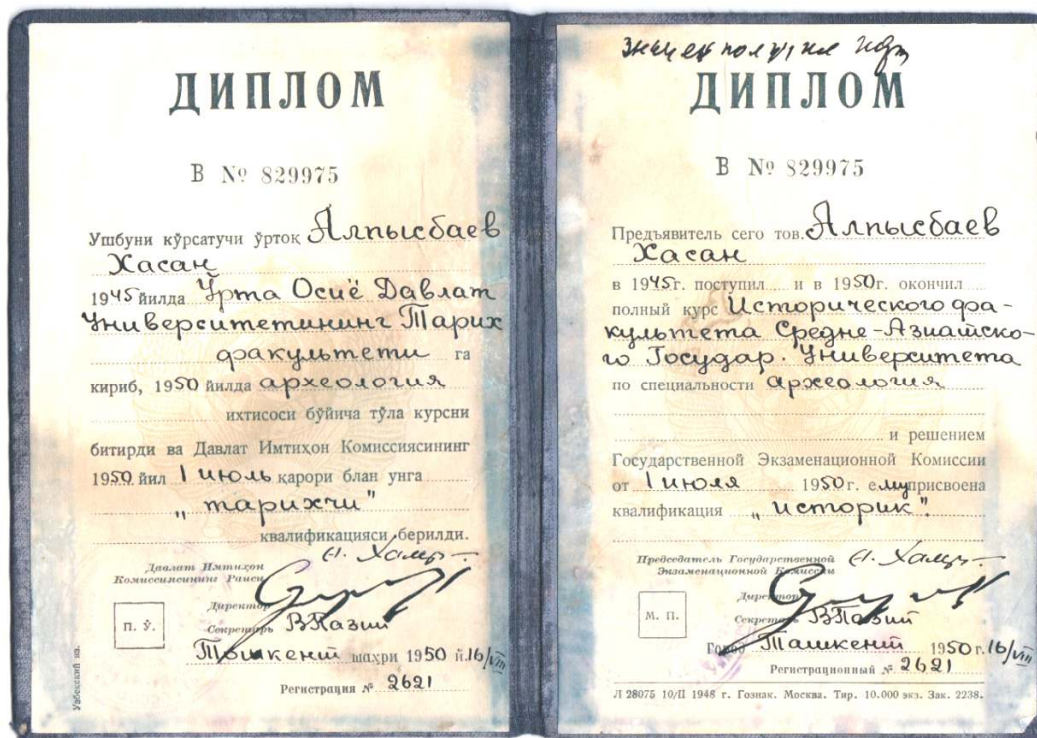 ДИПЛОМ
В № 829975
Ушбуни кўрсатучи ўртоқ Алпысбаев
Хасан
1945 йилда Ўрта Осиё Давлат
Университетининг Тарих
факультети га
кириб, 1950 йилда археология
ихтисоси бўйича тўла курсни
битирди ва Давлат Имтиҳон Комиссиясининг
1950 йил 1 июль қарори блан унга
„тарихчи"
квалификацияси берилди.
Давлат Имтиҳон
Комиссиясининг Раиси
Директор
П. Ў.
Секретарь
Тошкент шаҳри 1950 й. 16/VII
Регистрация № 2621
Узбекский яз.
получил
ДИПЛОМ
В № 829975
Предъявитель сего тов. Алпысбаев
Хасан
в 1945 г. поступил и в 1950 г. окончил
полный курс Исторического фа-
культета Средне-Азиатско-
го Государ. Университета
по специальности археология
и решением
Государственной Экзаменационной Комиссии
от 1 июля 1950 г. ему присвоена
квалификация „историк".
Председатель Государственной
Экзаменационной Комиссии
Директор
М. П.
Секретарь
Город Ташкент 1950 г. 16/VII
Регистрационный № 2621
Л 28075 10/II 1948 г. Гознак. Москва. Тир. 10.000 экз. Зак. 2238.